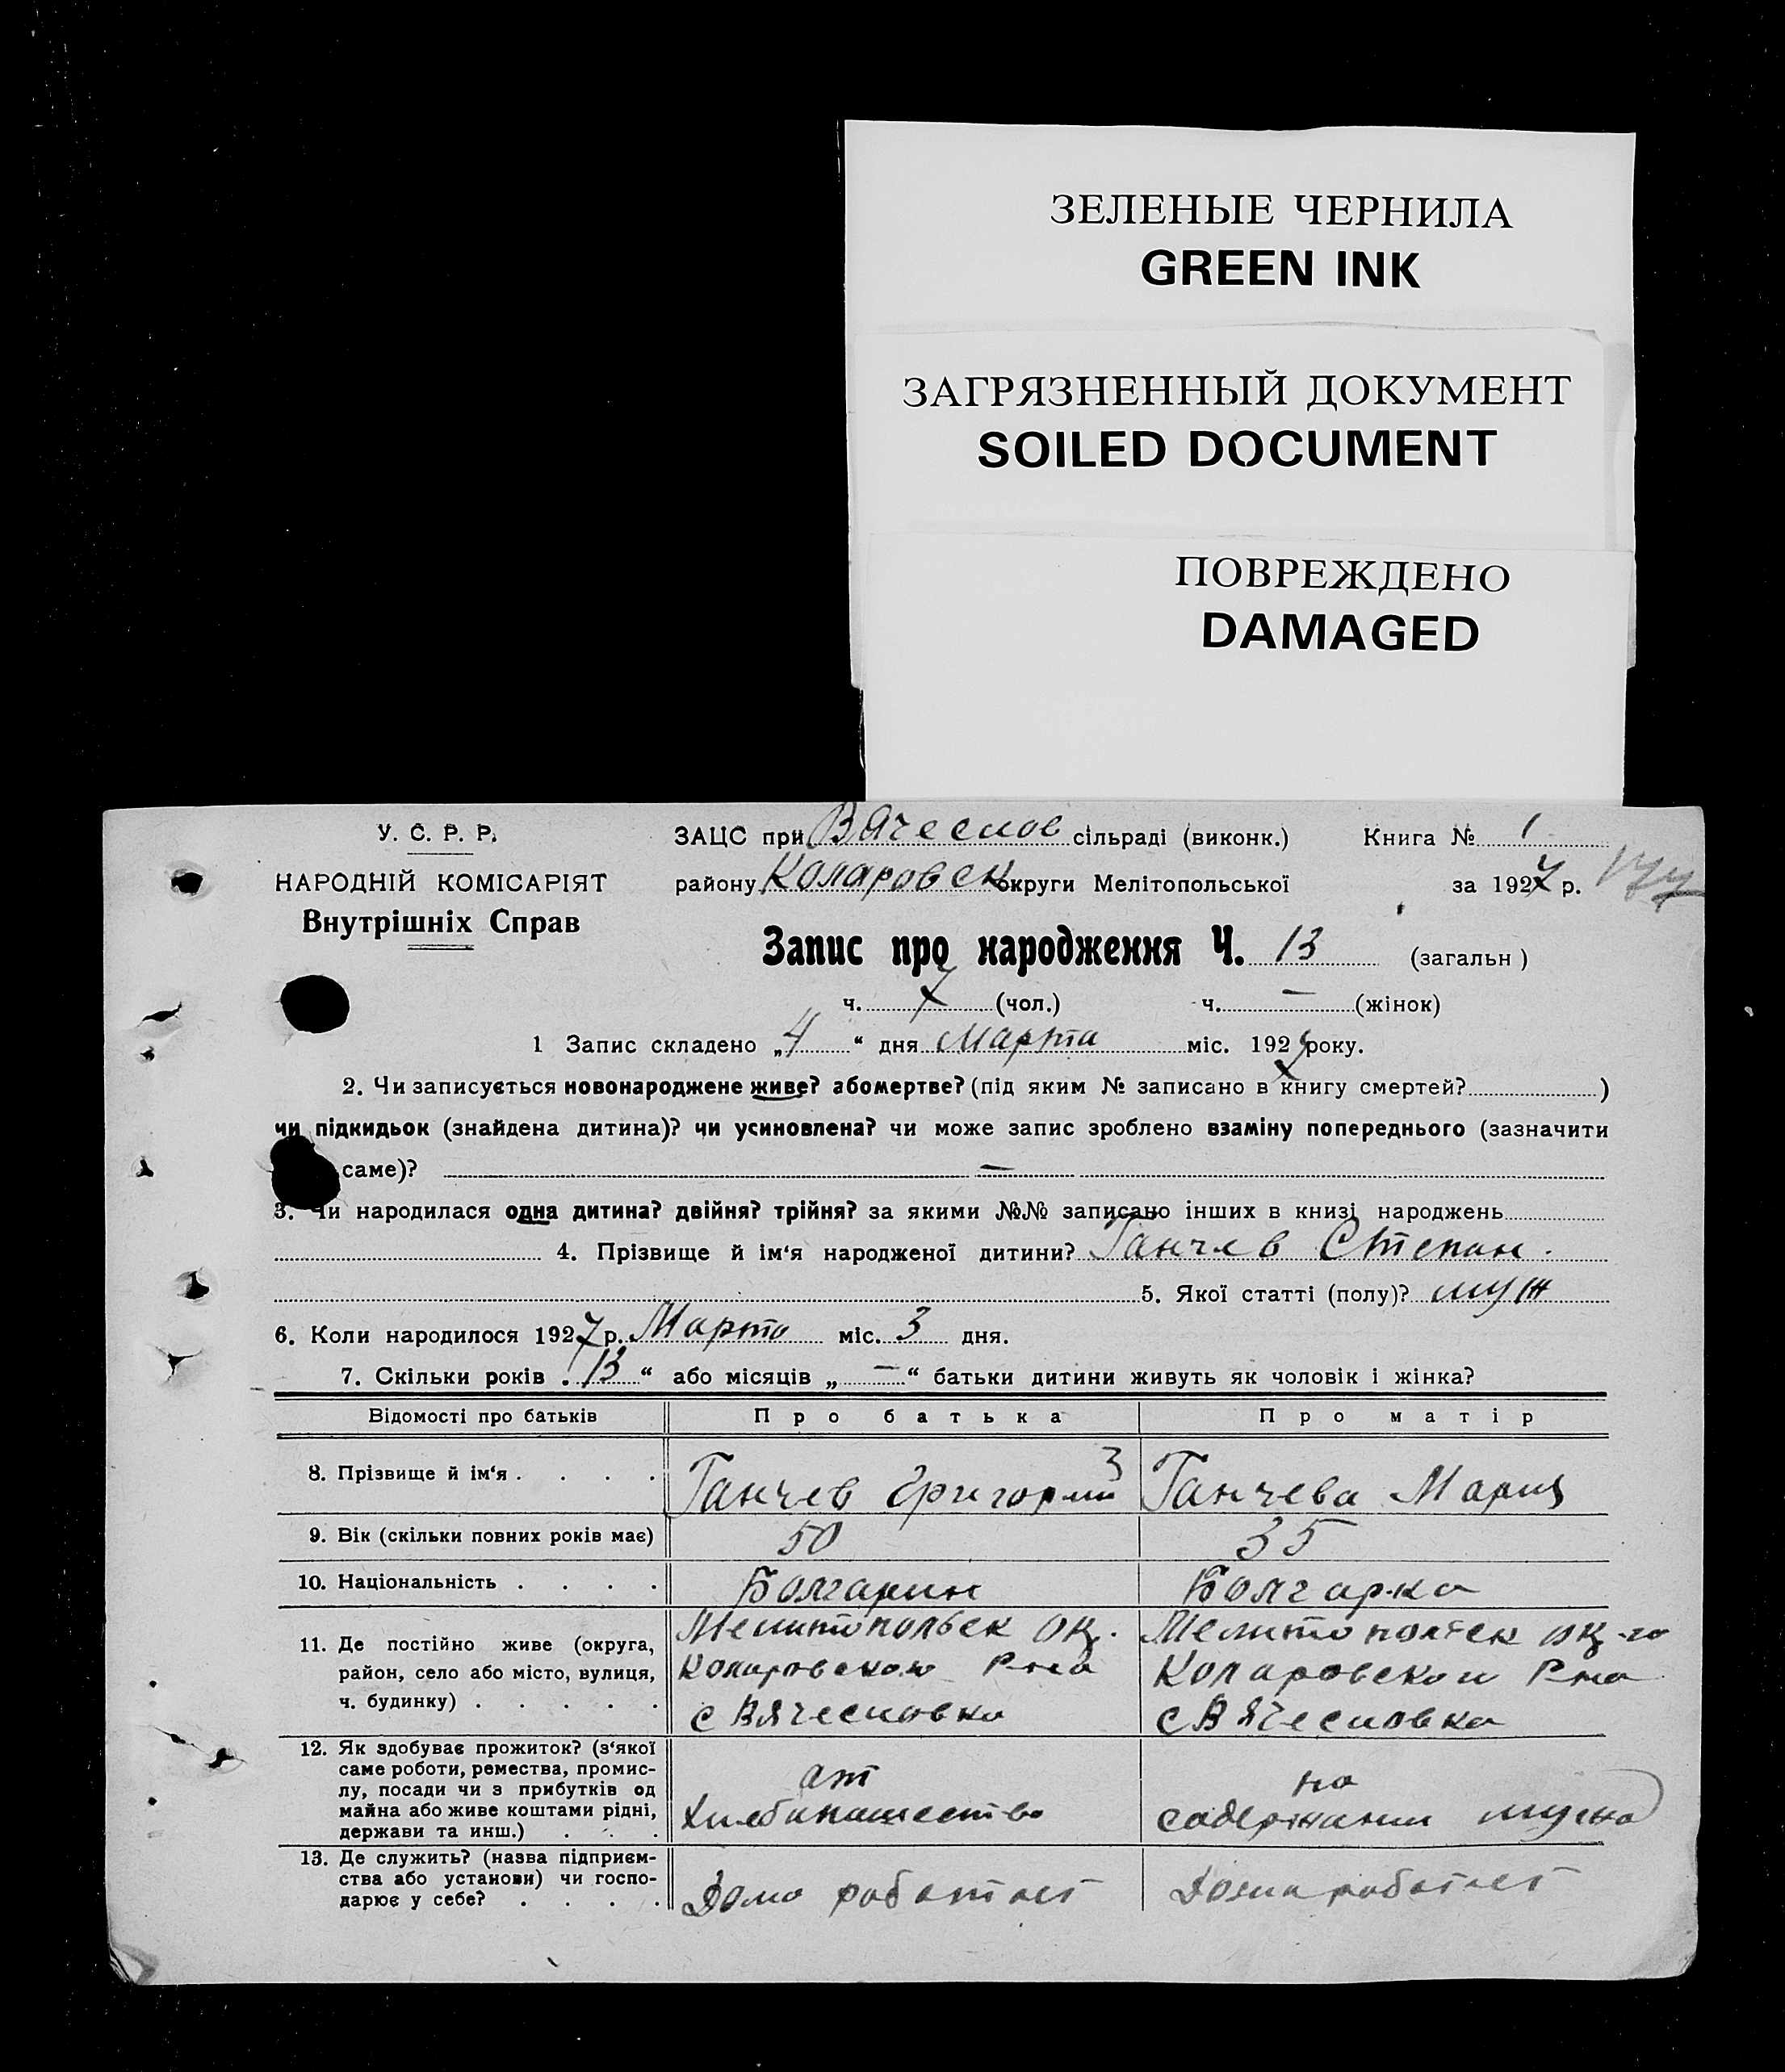 ЗЕЛЕНЫЕ ЧЕРНИЛА
GREEN INK
ЗАГРЯЗНЕННЫЙ ДОКУМЕНТ
SOILED DOCUMENT
ПОВРЕЖДЕНО
DAMAGED
У. С. Р. Р.
НАРОДНІЙ КОМІСАРІЯТ
Внутрішніх Справ
ЗАЦС при Вячеслов сільраді (виконк.) Книга № 1
району Коларовск округи Мелітопольської за 1927 р.
Запис про народження Ч. 13 (загальн)
ч. 7 (чол.) ч. — (жінок)
1 Запис складено „4“ дня Марта міс. 1927 року.
2. Чи записується новонароджене живе? або мертве? (під яким № записано в книгу смертей? )
чи підкидьок (знайдена дитина)? чи усиновлена? чи може запис зроблено взаміну попереднього (зазначити
саме)? —
3. Чи народилася одна дитина? двійня? трійня? за якими №№ записано інших в книзі народжень
4. Прізвище й ім‘я народженої дитини? Ганчев Степан.
5. Якої статті (полу)? муж
6. Коли народилося 1927 р. Марта міс. 3 дня.
7. Скільки років „13“ або місяців „—“ батьки дитини живуть як чоловік і жінка?
Відомості про батьків Про батька Про матір
8. Прізвище й ім‘я . . . . Ганчев Григорий З Ганчева Мария
9. Вік (скільки повних років має) 50 35
10. Національність . . . . Болгарин Болгарка
11. Де постійно живе (округа, Мелитопольск ок. Мелитопольск ок-го
район, село або місто, вулиця, Коларовского Р-на Коларовского Р-на
ч. будинку) . . . . . с Вячесловка с Вячесловка
12. Як здобуває прожиток? (з‘якої
саме роботи, ремества, промис-
лу, посади чи з прибутків од от на
майна або живе коштами рідні, Хлебопашество содержании мужа
держави та инш.) . . .
13. Де служить? (назва підприєм-
ства або установи) чи госпо- Дома работает Дома работает
дарює у себе? . . . .